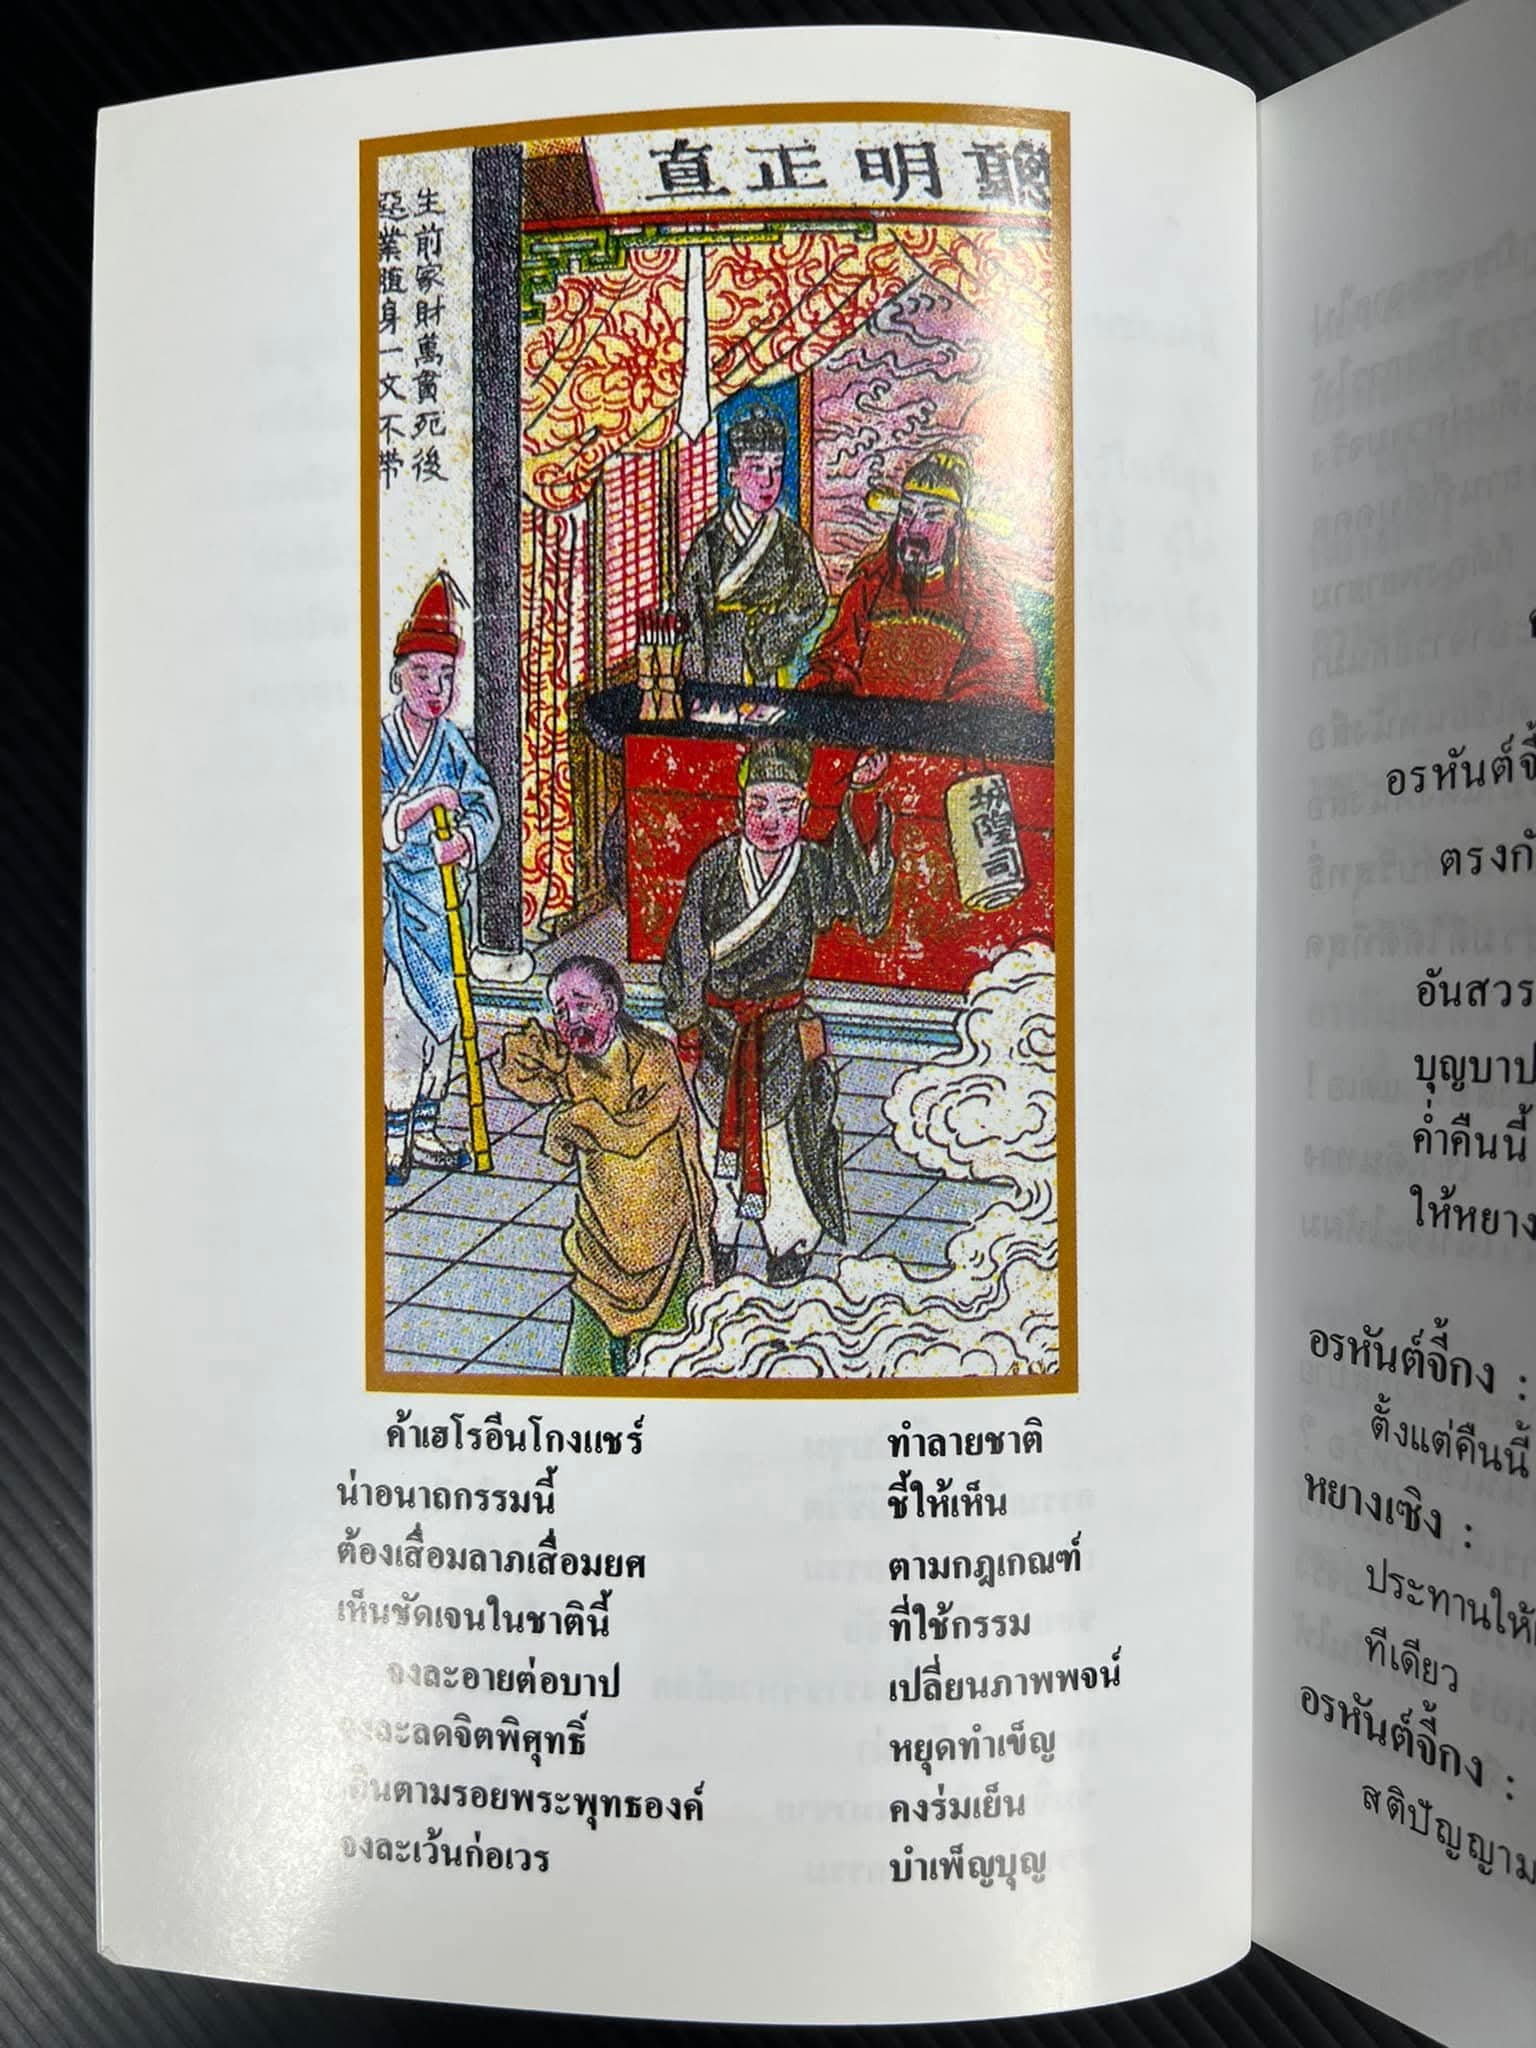 聰明正直
生前家財萬貫死後
惡業隨身一文不帶
城隍司
ค้าเฮโรอีนโกงแชร์ ทำลายชาติ
น่าอนาถกรรมนี้ ชี้ให้เห็น
ต้องเสื่อมลาภเสื่อมยศ ตามกฎเกณฑ์
เห็นชัดเจนในชาตินี้ ที่ใช้กรรม
จงละอายต่อบาป เปลี่ยนภาพพจน์
จงละลดจิตพิศุทธิ์ หยุดทำเข็ญ
เดินตามรอยพระพุทธองค์ คงร่มเย็น
จงละเว้นก่อเวร บำเพ็ญบุญ
อรหันต์จี้
ตรงกั
อันสวร
บุญบาป
ค่ำคืนนี้
ให้หยาง
อรหันต์จี้กง :
ตั้งแต่คืนนี้
หยางเซิง :
ประทานให้
ทีเดียว
อรหันต์จี้กง :
สติปัญญาม